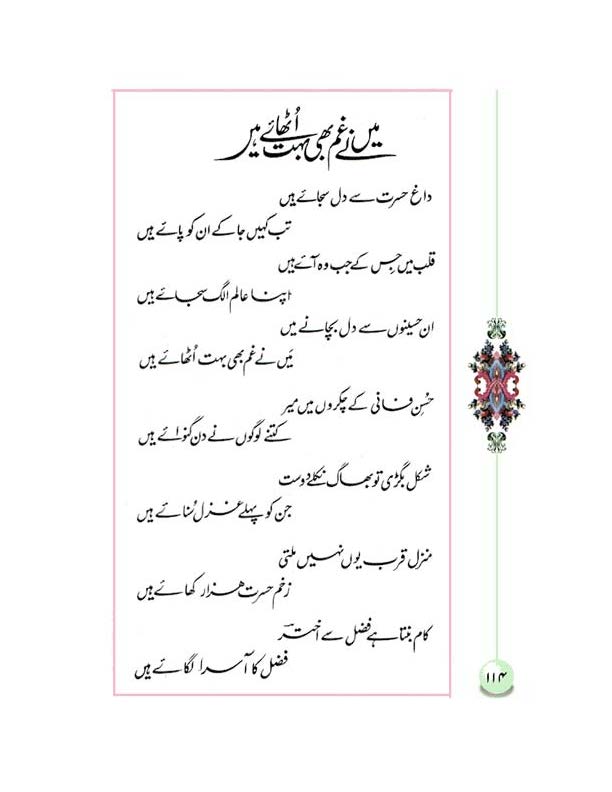 میں نے غم بھی بہت اُٹھائے ہیں
داغِ حسرت سے دل سجائے ہیں
تب کہیں جا کے ان کو پائے ہیں
قلب میں جِس کے جب وہ آئے ہیں
اپنا عالم الگ سجائے ہیں
ان حسینوں سے دل بچانے میں
مَیں نے غم بھی بہت اُٹھائے ہیں
حُسنِ فانی کے چکروں میں میر
کتنے لوگوں نے دن گنوائے ہیں
شکل بگڑی تو بھاگ نکلے دوست
جن کو پہلے غزل سُنائے ہیں
منزلِ قرب یوں نہیں ملتی
زخمِ حسرت ہزار کھائے ہیں
کام بنتا ہے فضل سے اخترؔ
فضل کا آسرا لگائے ہیں
۱۱۴